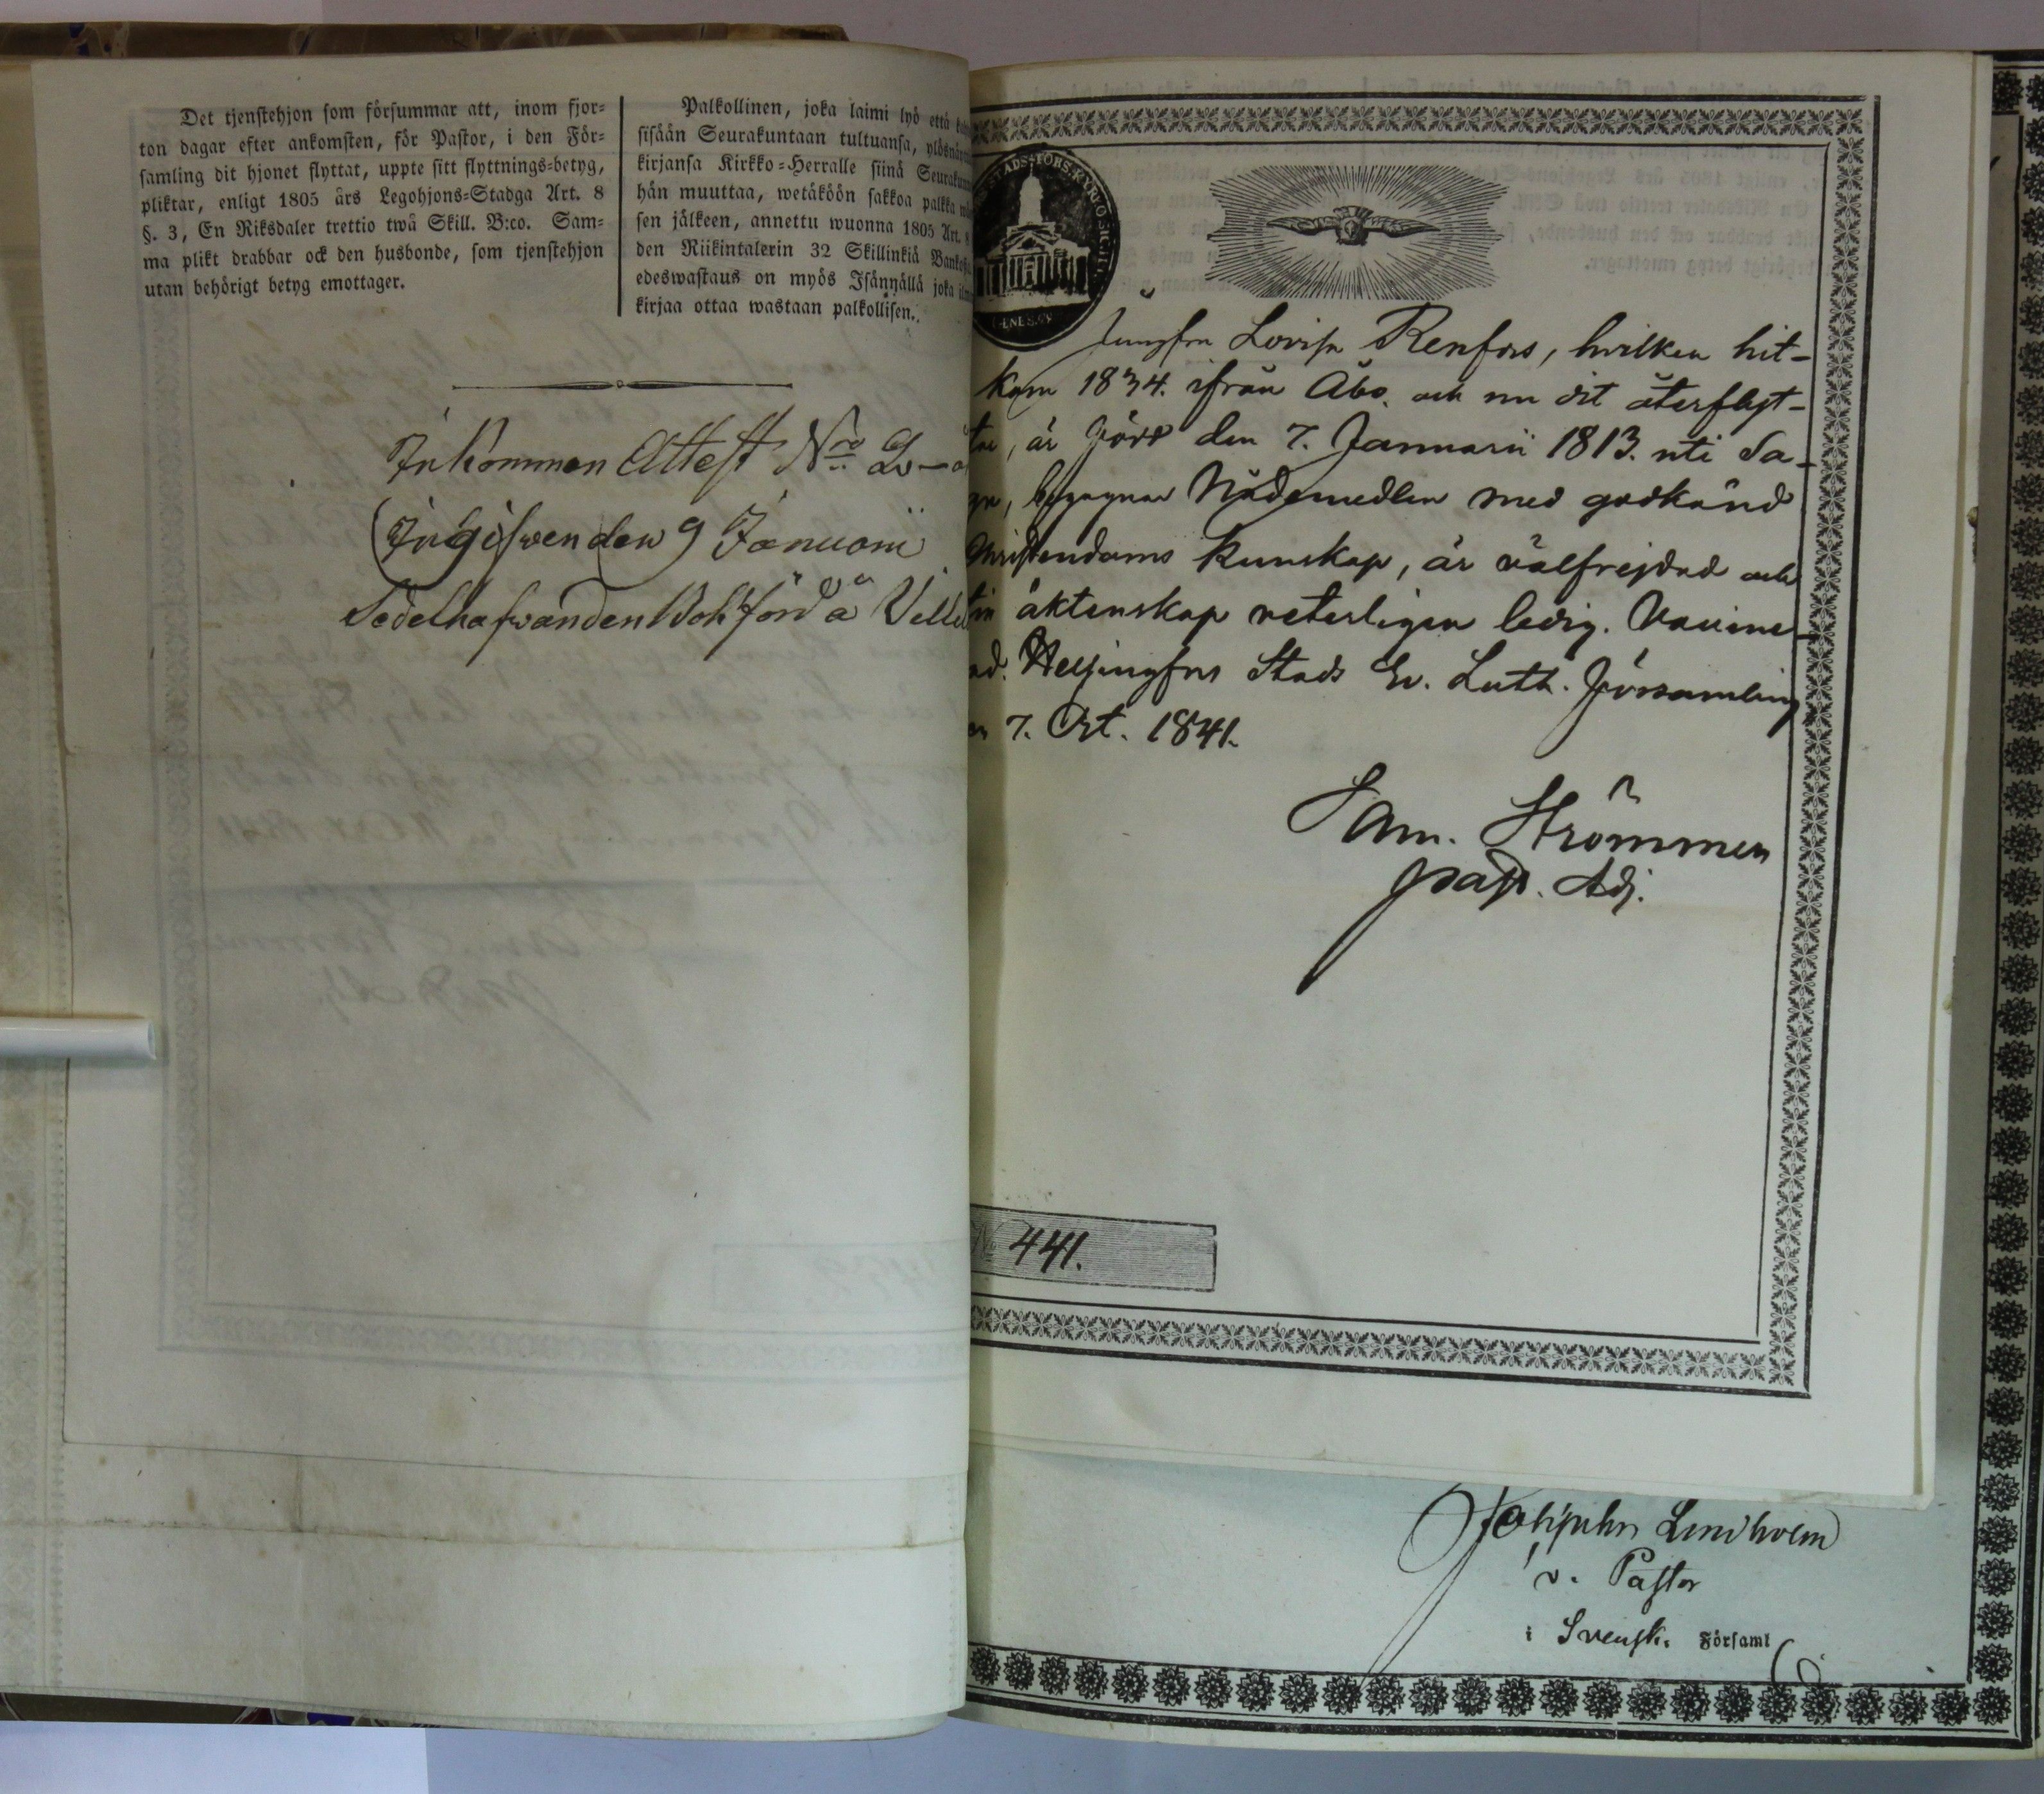 Det tjenstehjon som försummar att, inom fjor-
ton dagar efter ankomsten, för Pastor, i den För-
samling dit hjonet flyttat, uppte sitt flyttnings-betyg,
pliktar, enligt 1805 års Legohjons-Stadga Art. 8
§. 3, En Riksdaler trettio twå Skill. B:co. Sam-
ma plikt drabbar ock den husbonde, som tjenstehjon
utan behörigt betyg emottager.
Palkollinen, joka laimi lyö että
sisään Seurakuntaan tultuansa,
kirjansa Kirkko-Herralle siinä
hän muuttaa, wetäköön sakkoa palkka
sen jälkeen, annettu wuonna 1805 Art. 8
den Riikintalerin 32 Skillinkiä
edeswastaus on myös Isännällä joka
kirjaa ottaa wastaan palkollisen.
Inkommen Attest Nro
Ingifwen den 9 Januarii
Sedelhafwanden Bokförd å
Jungfru Lovisa Renfors, hvilken hit-
kom 1834. ifrån Åbo, och nu dit återflyt-
, är född den 7. Januarii 1813. uti Sa-
, begagnar Nådemedlen med godkänd
Christendoms kunskap, är välfrejdad och
äktenskap veterligen ledig. Vaccine-
ad. Helsingfors Stads Ev. Luth. Församling
7. Oct. 1841.
Sam. Strömmer
past. Adj.
No 441.
Lindholm
v. Pastor
i Svensk. Församl